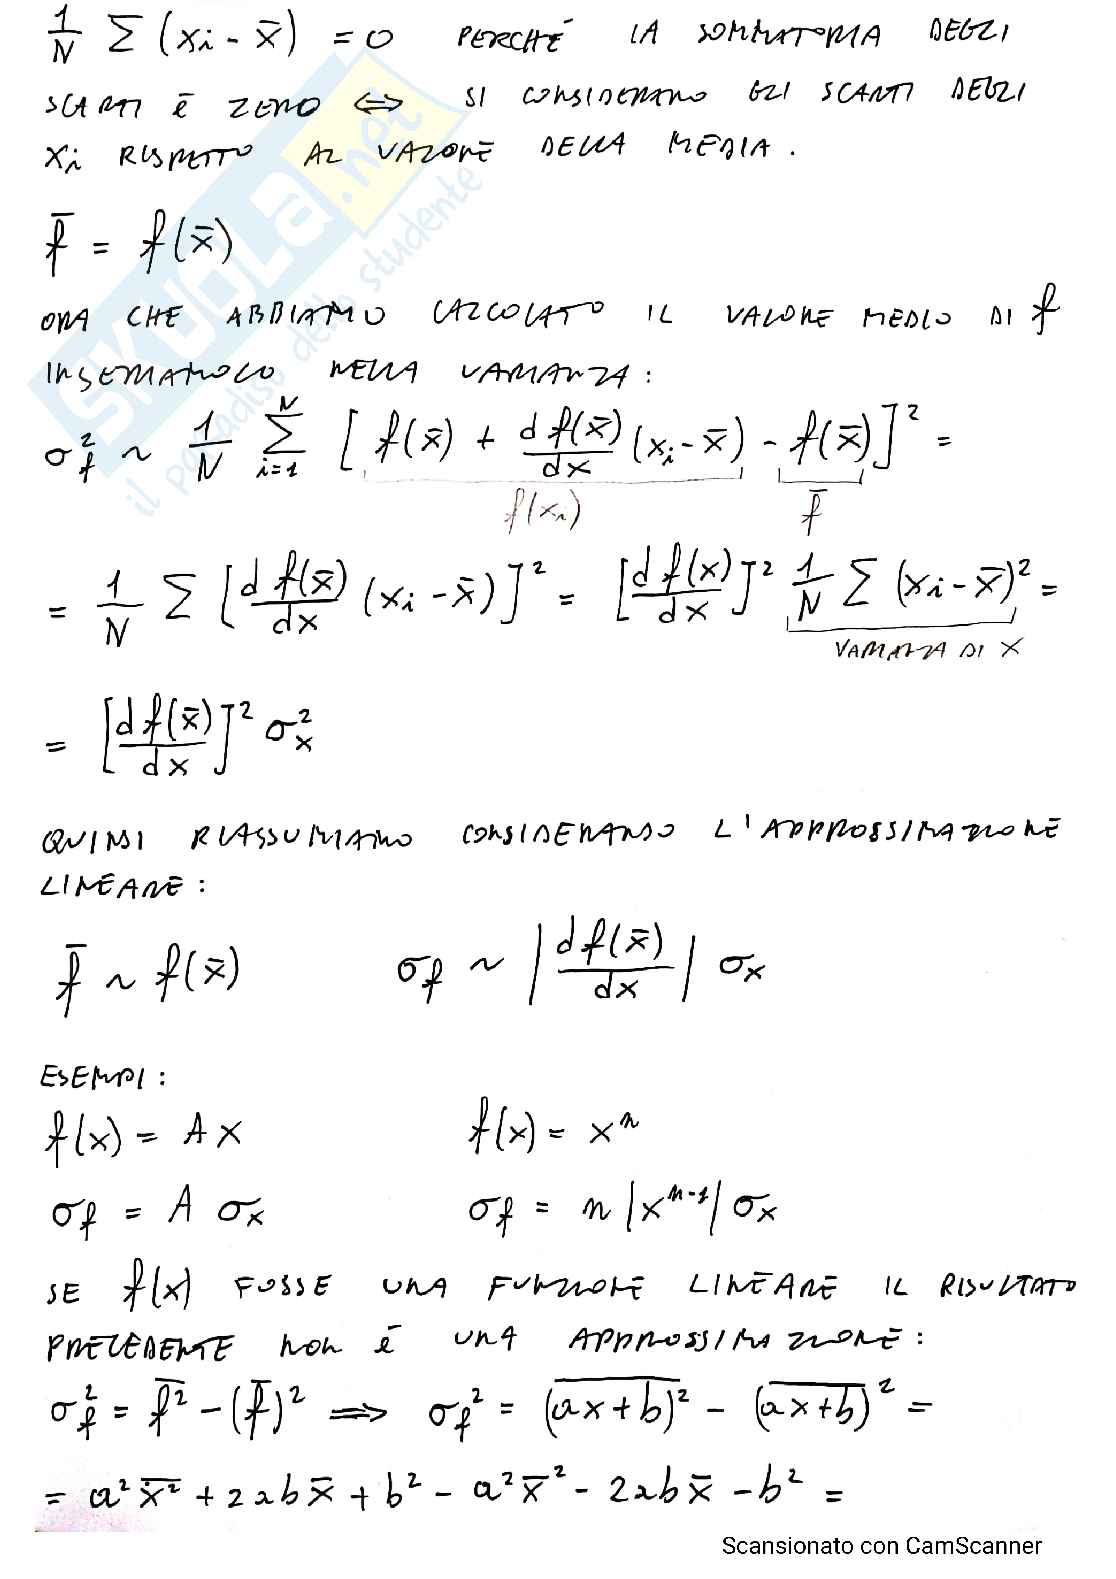 1/N Σ (xi - x̄) = 0 PERCHÉ LA SOMMATORIA DEGLI
SCARTI È ZERO ⟺ SI CONSIDERANO GLI SCARTI DEGLI
xi RISPETTO AL VALORE DELLA MEDIA.
f̄ = f(x̄)
ORA CHE ABBIAMO CALCOLATO IL VALORE MEDIO DI f
INSERIAMOLO NELLA VARIANZA:
σf² ~ 1/N Σ(i=1..N) [f(x̄) + df(x̄)/dx (xi - x̄) - f(x̄)]² =
f(xi) f̄
= 1/N Σ [df(x̄)/dx (xi - x̄)]² = [df(x)/dx]² 1/N Σ (xi - x̄)² =
VARIANZA DI X
= [df(x̄)/dx]² σx²
QUINDI RIASSUMIAMO CONSIDERANDO L'APPROSSIMAZIONE
LINEARE:
f̄ ~ f(x̄) σf ~ |df(x̄)/dx| σx
ESEMPI:
f(x) = A x f(x) = xⁿ
σf = A σx σf = n |xⁿ⁻¹| σx
SE f(x) FOSSE UNA FUNZIONE LINEARE IL RISULTATO
PRECEDENTE NON È UNA APPROSSIMAZIONE:
σf² = f̄²̄ - (f̄)² ⟹ σf² = \overline{(ax+b)²} - \overline{(ax+b)}² =
= a² \overline{x²} + 2abx̄ + b² - a²x̄² - 2abx̄ - b² =
Scansionato con CamScanner
SKUOLA.net
il paradiso dello studente